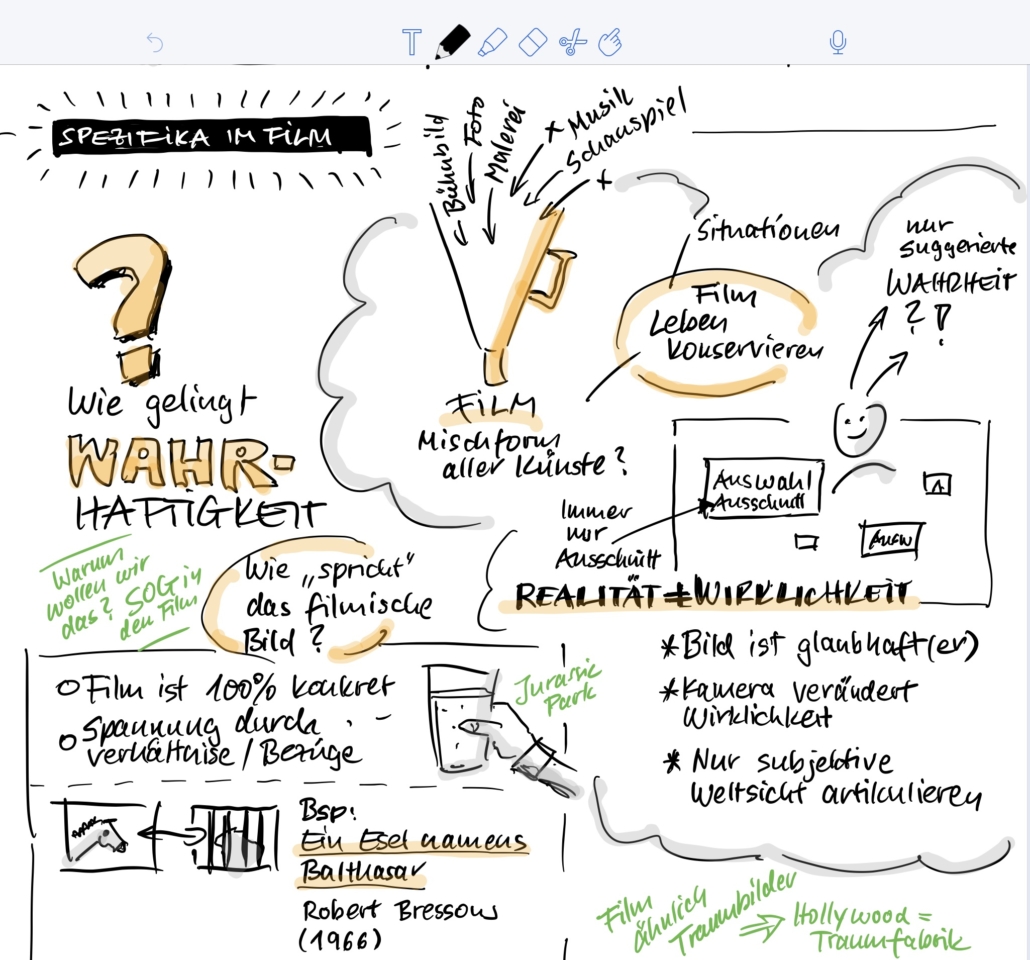 T
SPEZIFIKA IM FILM
Bühnbild
Foto
Malerei
+ Musik
Schauspiel
+
?
Wie gelingt
WAHR-
HAFTIGKEIT
FILM
Mischform
aller Künste?
Situationen
Film
Leben
konservieren
nur
suggerierte
WAHRHEIT
? !
Auswahl
Ausschnitt
A
Ausw
Immer
nur
Ausschnitt
REALITÄT ≠ WIRKLICHKEIT
Warum
wollen wir
das? SOG in
den Film
Wie „spricht"
das filmische
Bild?
O Film ist 100% konkret
O Spannung durch
verhältnise / Bezüge
Jurassic
Park
* Bild ist glaubhaft(er)
* Kamera verändert
Wirklichkeit
* Nur subjektive
Weltsicht artilculieren
Bsp:
Ein Esel namens
Balthasar
Robert Bressons
(1966)
Film
ähnlich
Traumbilder
⇒ Hollywood =
Traumfabrik